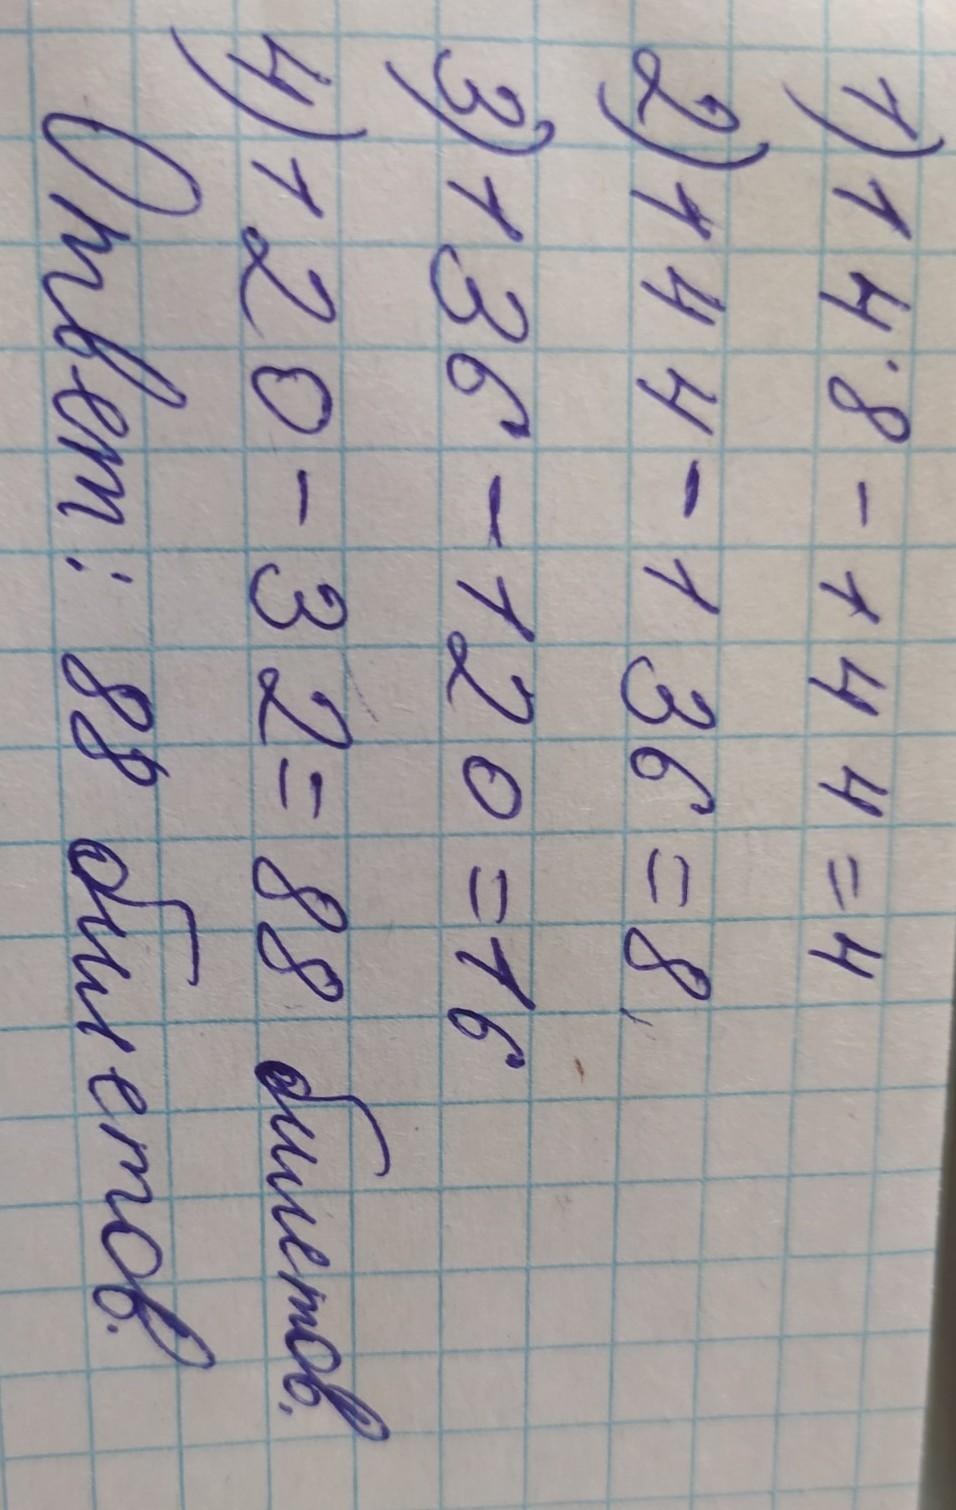 1) 148 - 144 = 4
2) 144 - 136 = 8
3) 136 - 120 = 16
4) 120 - 32 = 88 билетов.
Ответ: 88 билетов.